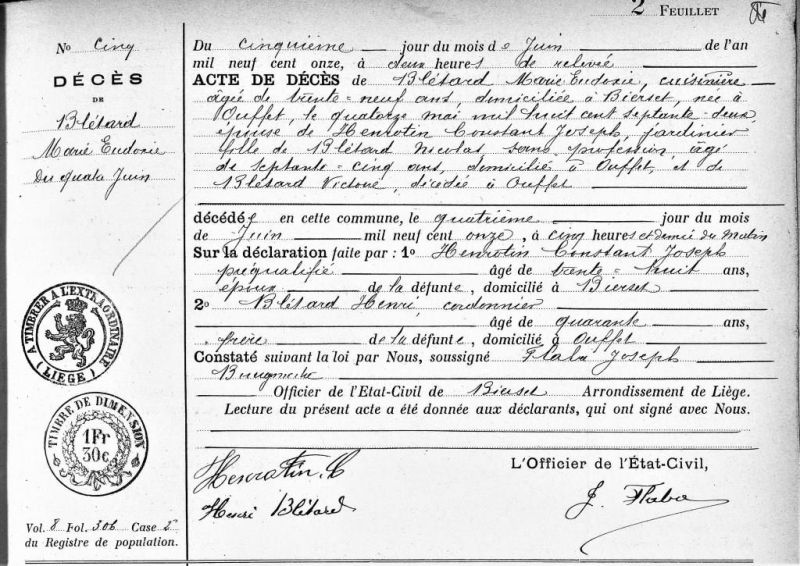 2 FEUILLET
No Cinq
DÉCÈS
DE
Blétard
Marie Eudoxie
Du quatre Juin
Du cinquième jour du mois de Juin de l'an
mil neuf cent onze, à deux heures de relevée
ACTE DE DÉCÈS de Blétard Marie Eudoxie, cuisinière
âgée de trente-neuf ans, domiciliée à Bierset, née à
Ouffet, le quatorze mai mil huit cent septante-deux,
épouse de Henrotin Constant Joseph, jardinier
fille de Blétard Nicolas, sans profession, âgé
de septante-cinq ans, domicilié à Ouffet, et de
Blétard Victoire, décédée à Ouffet
décédée en cette commune, le quatrième jour du mois
de Juin mil neuf cent onze, à cinq heures et demie du matin
Sur la déclaration faite par : 1o Henrotin Constant Joseph
préqualifié âgé de trente-huit ans,
époux de la défunte, domicilié à Bierset
2o Blétard Henri, cordonnier
âgé de quarante ans,
frère de la défunte, domicilié à Ouffet
Constaté suivant la loi par Nous, soussigné Flaba Joseph
Bourgmestre
Officier de l'Etat-Civil de Bierset Arrondissement de Liège.
Lecture du présent acte a été donnée aux déclarants, qui ont signé avec Nous.
A TIMBRER A L'EXTRAORDINAIRE
(LIEGE)
TIMBRE DE DIMENSION
1Fr
30c.
Henrotin. C
Henri Blétard
L'Officier de l'État-Civil,
J. Flaba
Vol. 8 Fol. 306 Case 5
du Registre de population.